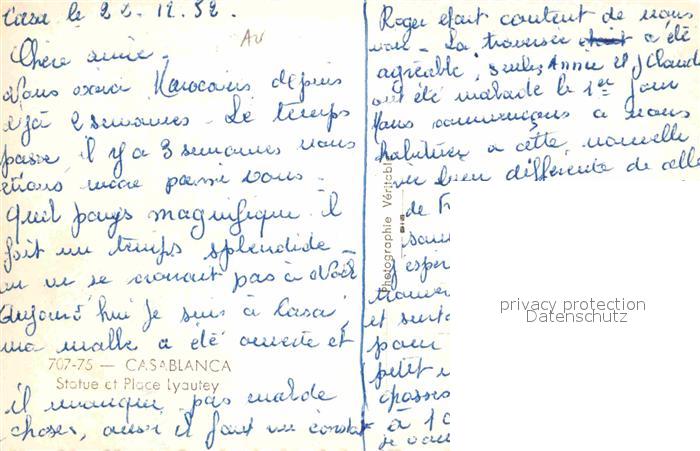 Casa le 22.12.52.
Chère amie.
Nous voici Marocains depuis
déjà 2 semaines. Le temps
passe il y a 3 semaines nous
étions encore parmi vous.
Quel pays magnifique. il
fait un temps splendide.
on ne se croirait pas à Noël
Aujourd'hui je suis à Casa,
ma malle a été ouverte et
707-75 — CASABLANCA
Statue et Place Lyautey
il manque pas mal de
choses, aussi il faut un constat
Roger était content de nous
voir. La traversée a été
agréable, seules Annie et J Claude
ont été malade le 1er jour
Nous commençons à nous
habituer à cette nouvelle
vie bien différente de celle
de
Photographie Véritable
et
petit
à 10
je
privacy protection
Datenschutz